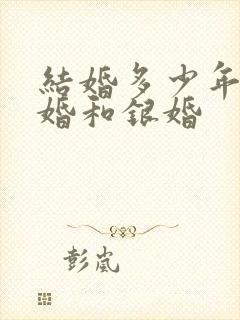 結婚多少年
婚和銀婚
彭嵐